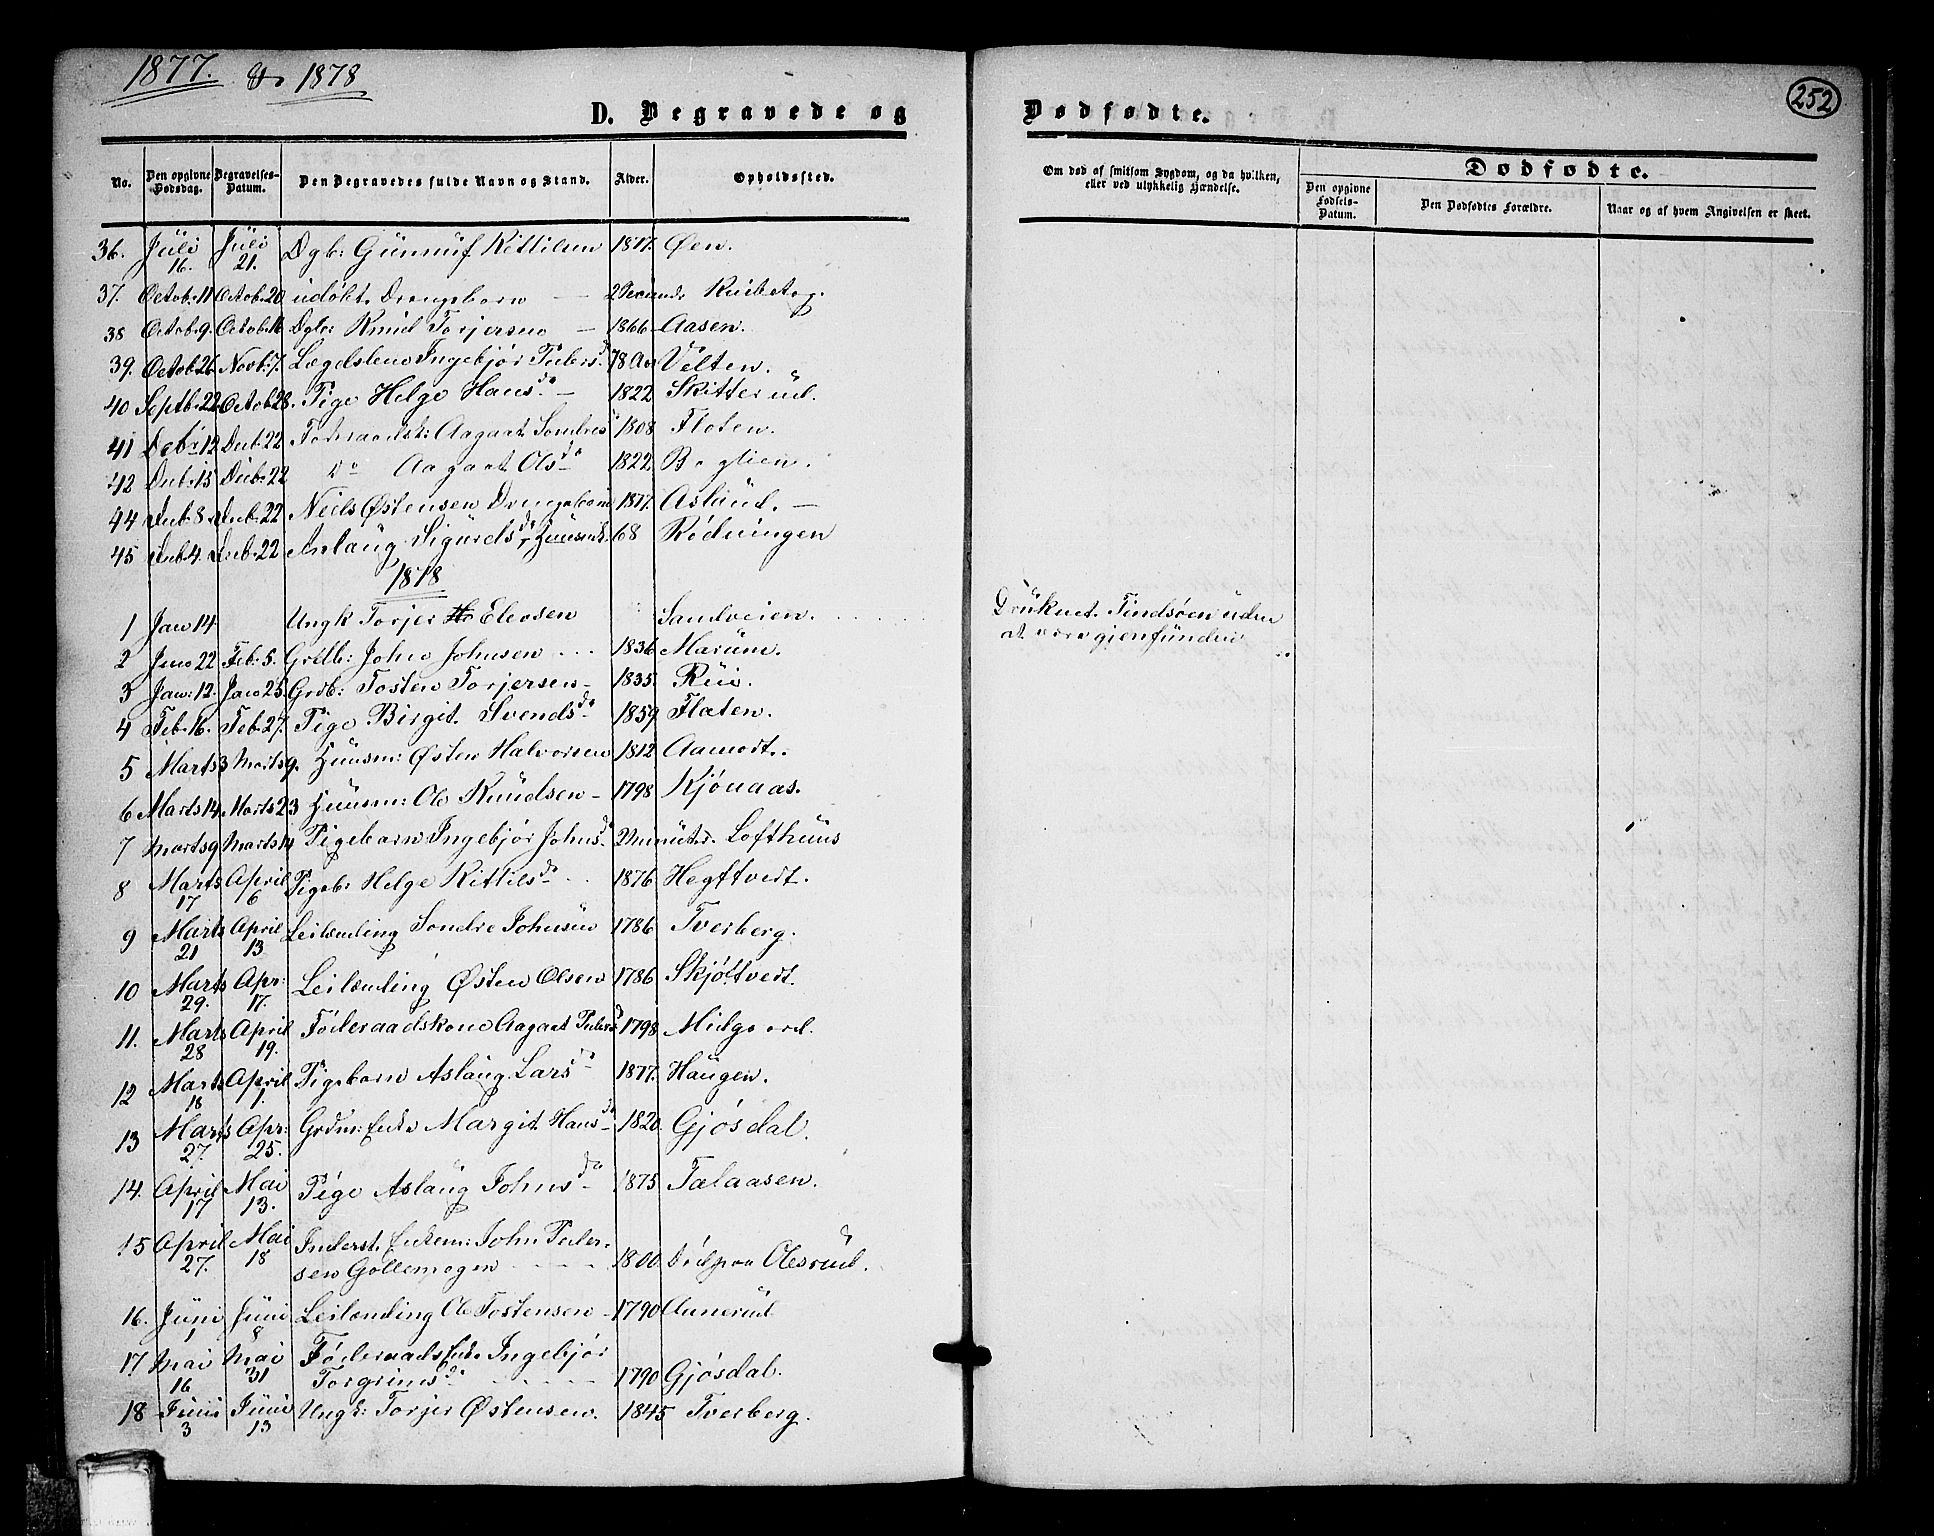 1877. & 1878
D. Begravede og
Dødfødte.
252
No. Den opgivne Dødsdag. Begravelses-Datum. Den Begravedes fulde Navn og Stand. Alder. Opholdssted.
Om død af smitsom Sygdom, og da hvilken, eller ved ulykkelig Hændelse.
Dødfødte.
Den opgivne Fødsels-Datum. Den Dødfødtes Forældre. Naar og af hvem Angivelsen er skeet.
36. Juli 16. Juli 21. Dgb: Gunnuf Kittilsen 1877. Øen.
37. Octob. 11 Octob. 20 udøbt Drengebarn —
38 Octob. 9. Octob. 16 Dgb: Knud Torjersen — 1866 Aasen.
39. Octob. 26 Novb. 7. Lægdslem Ingebjør Peders D 78 Aar Velten.
40 Septb. 22 Octob. 28. Pige Helge Hans da — 1822 Skitterud.
41 Decb. 12 Decb. 22 Føderaadsk: Aagaat Sondres 1808 Floten.
42 Decb. 15 Decb. 22 Do Aagaat Ols da 1822. Boglien.
44 Decb. 8. Decb. 22 Niels Østensen Drengebarn 1877. Aslund. —
45 Decb. 4. Decb. 22 Aslaug Sigurds da Huusmk. 68 Rødningen
1878
1 Jan 14 Ungk Torjer Eleosen Sandveien. Druknet. Tindsøen uden
at være gjenfunden
2 Jan 22 Feb. 5. Grdb: John Johnsen 1836 Marum.
3 Jan. 12. Jan 25. Grdb: Tosten Torjersen — 1835. Rui.
4 Feb. 16. Feb. 27. Pige Birgit Svends da 1859 Flaten.
5 Marts 3 Marts 9. Huusm: Østen Halvorsen 1812 Aamodt.
6 Marts 14 Marts 23 Huusm: Ole Knudsen — 1798 Kjønaas.
7 Marts 9 Marts 14 Pigebarn Ingebjør Johns da Minuter. Lofthuus
8 Marts 17 April 6 Pigeb: Helge Kittils da 1876 Hegftvedt.
9 Marts 21 April 13 Leilænding Sondre Johnsen 1786 Tverberg.
10 Marts 29. Apr: 17. Leilænding Østen Olsen 1786 Skjøttvedt.
11. Marts 28 April 19. Føderaadskone Aagaat Peders D 1798 Midgaard.
12 Marts 18 April 1. Pigebarn Aslaug Lars da 1877. Haugen.
13 Marts 27. Apr: 25. Grdm: Enke Margit Hans da 1820 Gjøsdal.
14. April 17 Mai 13. Pige Aslaug Johns da 1875 Talaasen.
15 April 27. Mai 18 Inderst Enkem: John Peder-
sen Gollemogen 1800. Død paa Olesrud.
16. Juni 1 Juni 8 Leilænding Ole Tostensen — 1790 Unnerud
17. Mai 16 Mai 31 Føderaads Enke Ingebjør
Torgrims da 1790 Gjøsdal.
18 Juni 3 Juni 13 Ungk: Torjer Østensen. 1845 Tverberg.